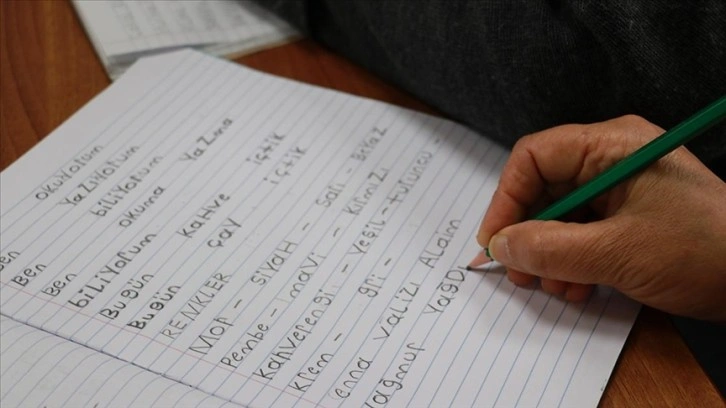 okuyorum
Ben yazıyorum
Ben biliyorum
Ben okuma yazma
biliyorum
Bugün kahve içtik
Bugün çay içtik
RENKLER
Mor - siyah - sarı - Beyaz
Pembe - mavi - kırmızı
Kahverengi - Yeşil - turuncu -
Krem - gri -
valizi Alaım
Yağmur Yağd